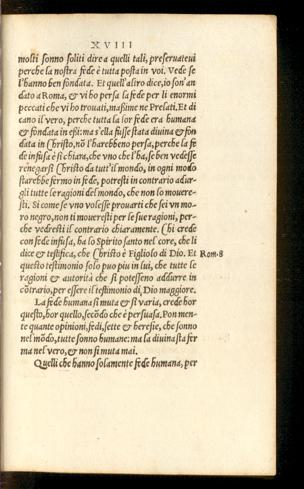 XVIII
molti sonno soliti dire a quelli tali, preseruateui
perche la nostra fede è tutta posta in voi. Vede se
l'hanno ben fondata. Et quell'altro dice, io son'an
dato a Roma, & vi ho persa la fede per li enormi
peccati che vi ho trouati, maßime ne Prelati. Et di
cano il vero, perche tutta la lor fede era humana
& fondata in eßi: ma s'ella fusse stata diuina & fon
data in Christo, nõ l'harebbeno persa, perche la fe
de infusa è sì chiara, che vno che l'ha, se ben vedesse
renegarsi Christo da tutt'il mondo, in ogni modo
starebbe fermo in fede, potresti in contrario addur
gli tutte le ragioni del mondo, che non lo mouere-
sti. Si come se vno volesse prouarti che sei vn mo-
ro negro, non ti moueresti per le sue ragioni, per-
che vedresti il contrario chiaramente. Chi crede
con fede infusa, ha lo Spirito santo nel core, che li
dice & testifica, che Christo è Figliolo di Dio. Et Rom.8
questo testimonio solo puo piu in lui, che tutte le
ragioni & autorità che si potesseno addurre in
cõtrario, per essere il testimonio di Dio maggiore.
La fede humana si muta & si varia, crede hor
questo, hor quello, secõdo che è persuasa. Pon men-
te quante opinioni, fedi, sette & heresie, che sonno
nel mõdo, tutte sonno humane: ma la diuina sta fer
ma nel vero, & non si muta mai.
Quelli che hanno solamente fede humana, per